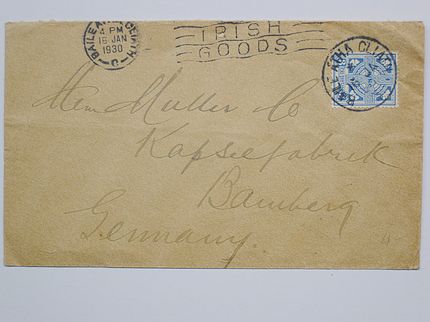 BAILE ATHA CLIATH
4 PM
16 JAN
1930
C
IRISH
GOODS
BAILE ATHA CLIATH
Herrn Müller & Co
Kapselfabrik
Bamberg
Germany.